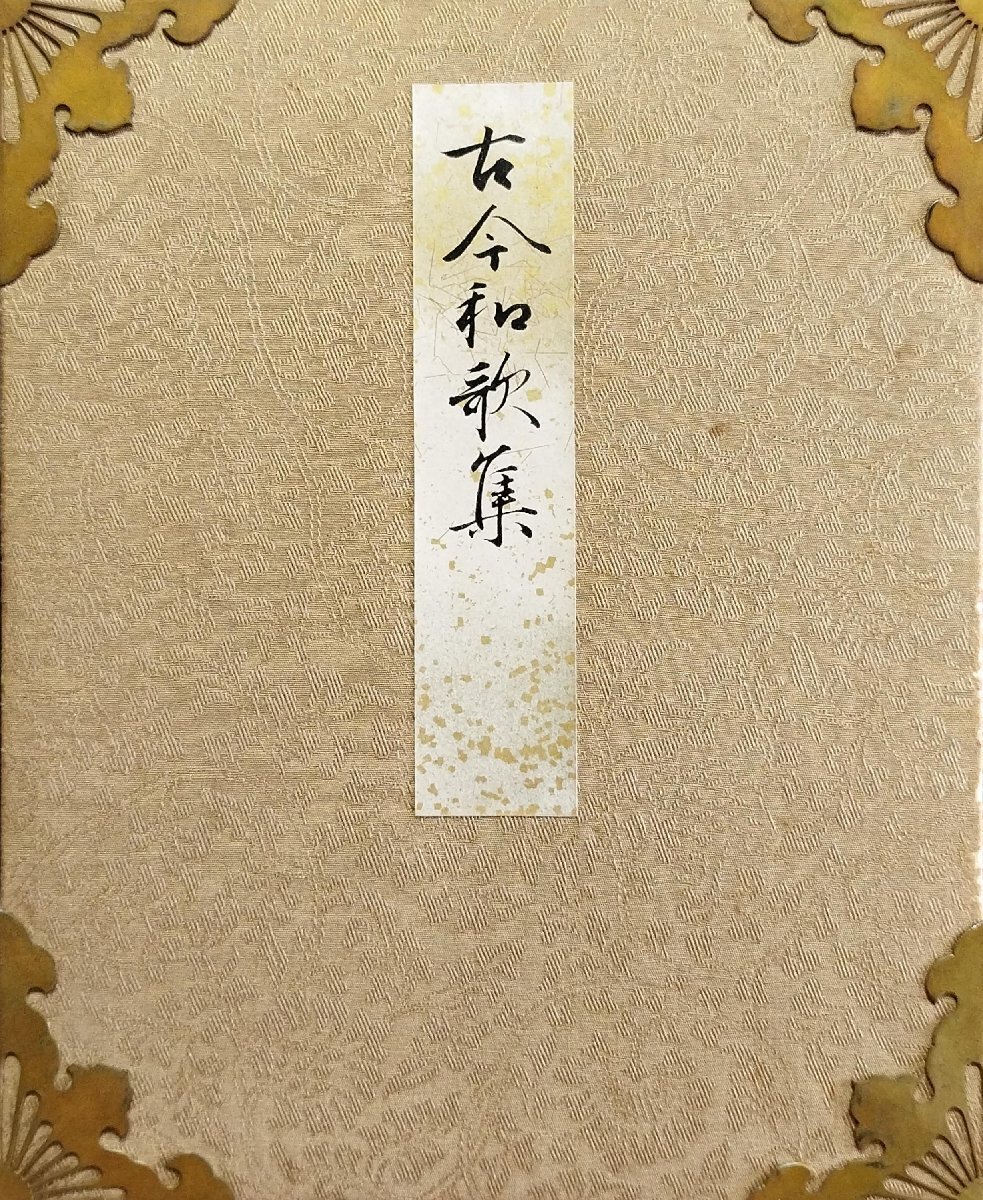 古今和歌集